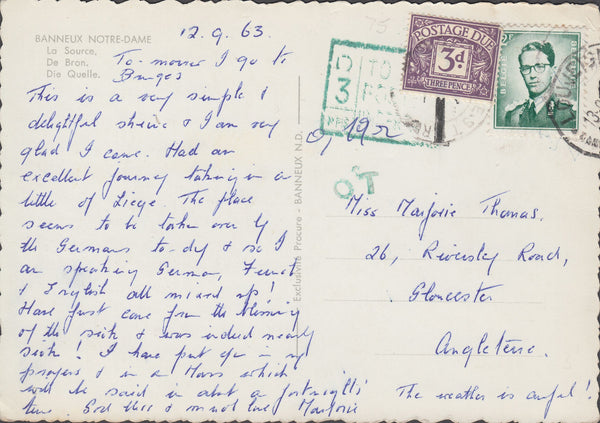 BANNEUX NOTRE-DAME
La Source.
De Bron.
Die Quelle.
12.9.63.
To-morrow I go to
Bruges
This is a very simple &
delightful shrine & I am very
glad I came. Had an
excellent journey taking in a
little of Liege. The place
seems to be taken over by
the Germans to-day & so I
am speaking German, French
& English all mixed up!
Have just come from the blessing
of the sick & was indeed nearly
sick! I have put you in my
prayers & in a Mass which
will be said in about a fortnight's
time God bless & much love Marjorie
Exclusivité Procure - BANNEUX N.D.
TO
3
POSTAGE DUE
3d
THREE PENCE
O T
Miss Marjorie Thomas.
26, Riversley Road,
Gloucester
Angleterre.
The weather is awful!